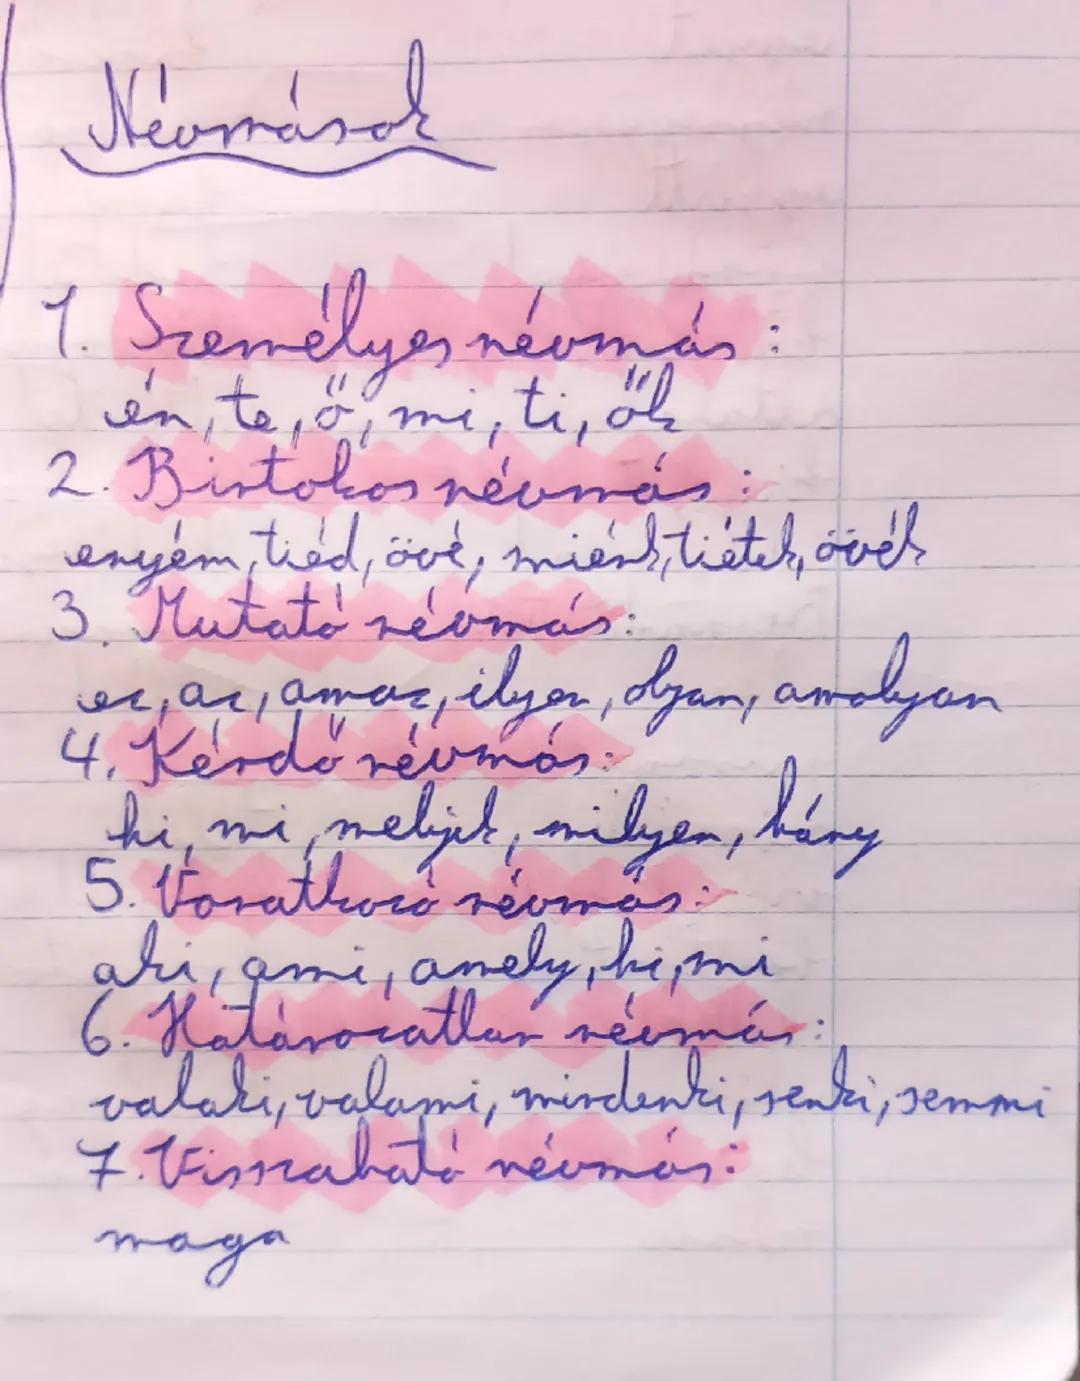 Névmások
1. Személyes névmás:
én, te, ő, mi, ti, ők
2. Birtokos névmás:
enyém, tiéd, övé, miénk, tiétek, övék
3. Mutató névmás:
ez, az, amaz, ilyen, olyan, amolyan
4. Kérdő névmás:
ki, mi, melyik, milyen, hány
5. Vonatkozó névmás:
aki, ami, amely, ki, mi
6. Határozatlan névmás:
valaki, valami, mindenki, senki, semmi
7. Visszaható névmás:
maga